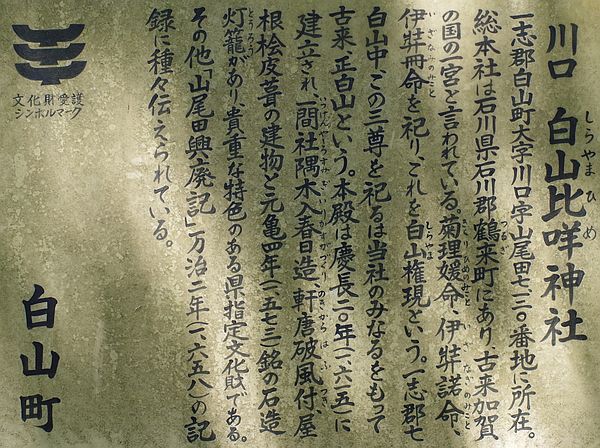 川口 白山比咩神社
しらやまひめ
一志郡白山町大字川口字山尾田七一三〇番地に所在。
総本社は石川県石川郡鶴来町にあり、古来加賀
つるぎ
の国の一宮と言われている。菊理媛命、伊弉諾命、
くくりひめのみこと いざなぎのみこと
伊弉冊命を祀り、これを白山権現という。一志郡七
いざなみのみこと しらやま
白山中、この三尊を祀るは当社のみなるをもって
古来、正白山という。本殿は慶長二〇年(一、六一五)に
建立され、一間社隅木入春日造、軒唐破風付、屋
根桧皮葺の建物と元亀四年(一五七三)銘の石造
灯籠があり、貴重な特色のある県指定文化財である。
とうろう
その他「山尾田興廃記」万治二年(一、六五八)の記
録に種々伝えられている。
文化財愛護
シンボルマーク
白山町